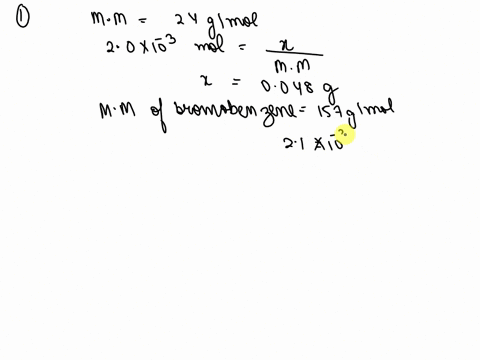 ① M.M = 24 g/mol
2.0 x 10⁻³ mol = x / M.M
x = 0.048 g
M.M of bromobenzene = 157 g/mol
2.1 x 10⁻³